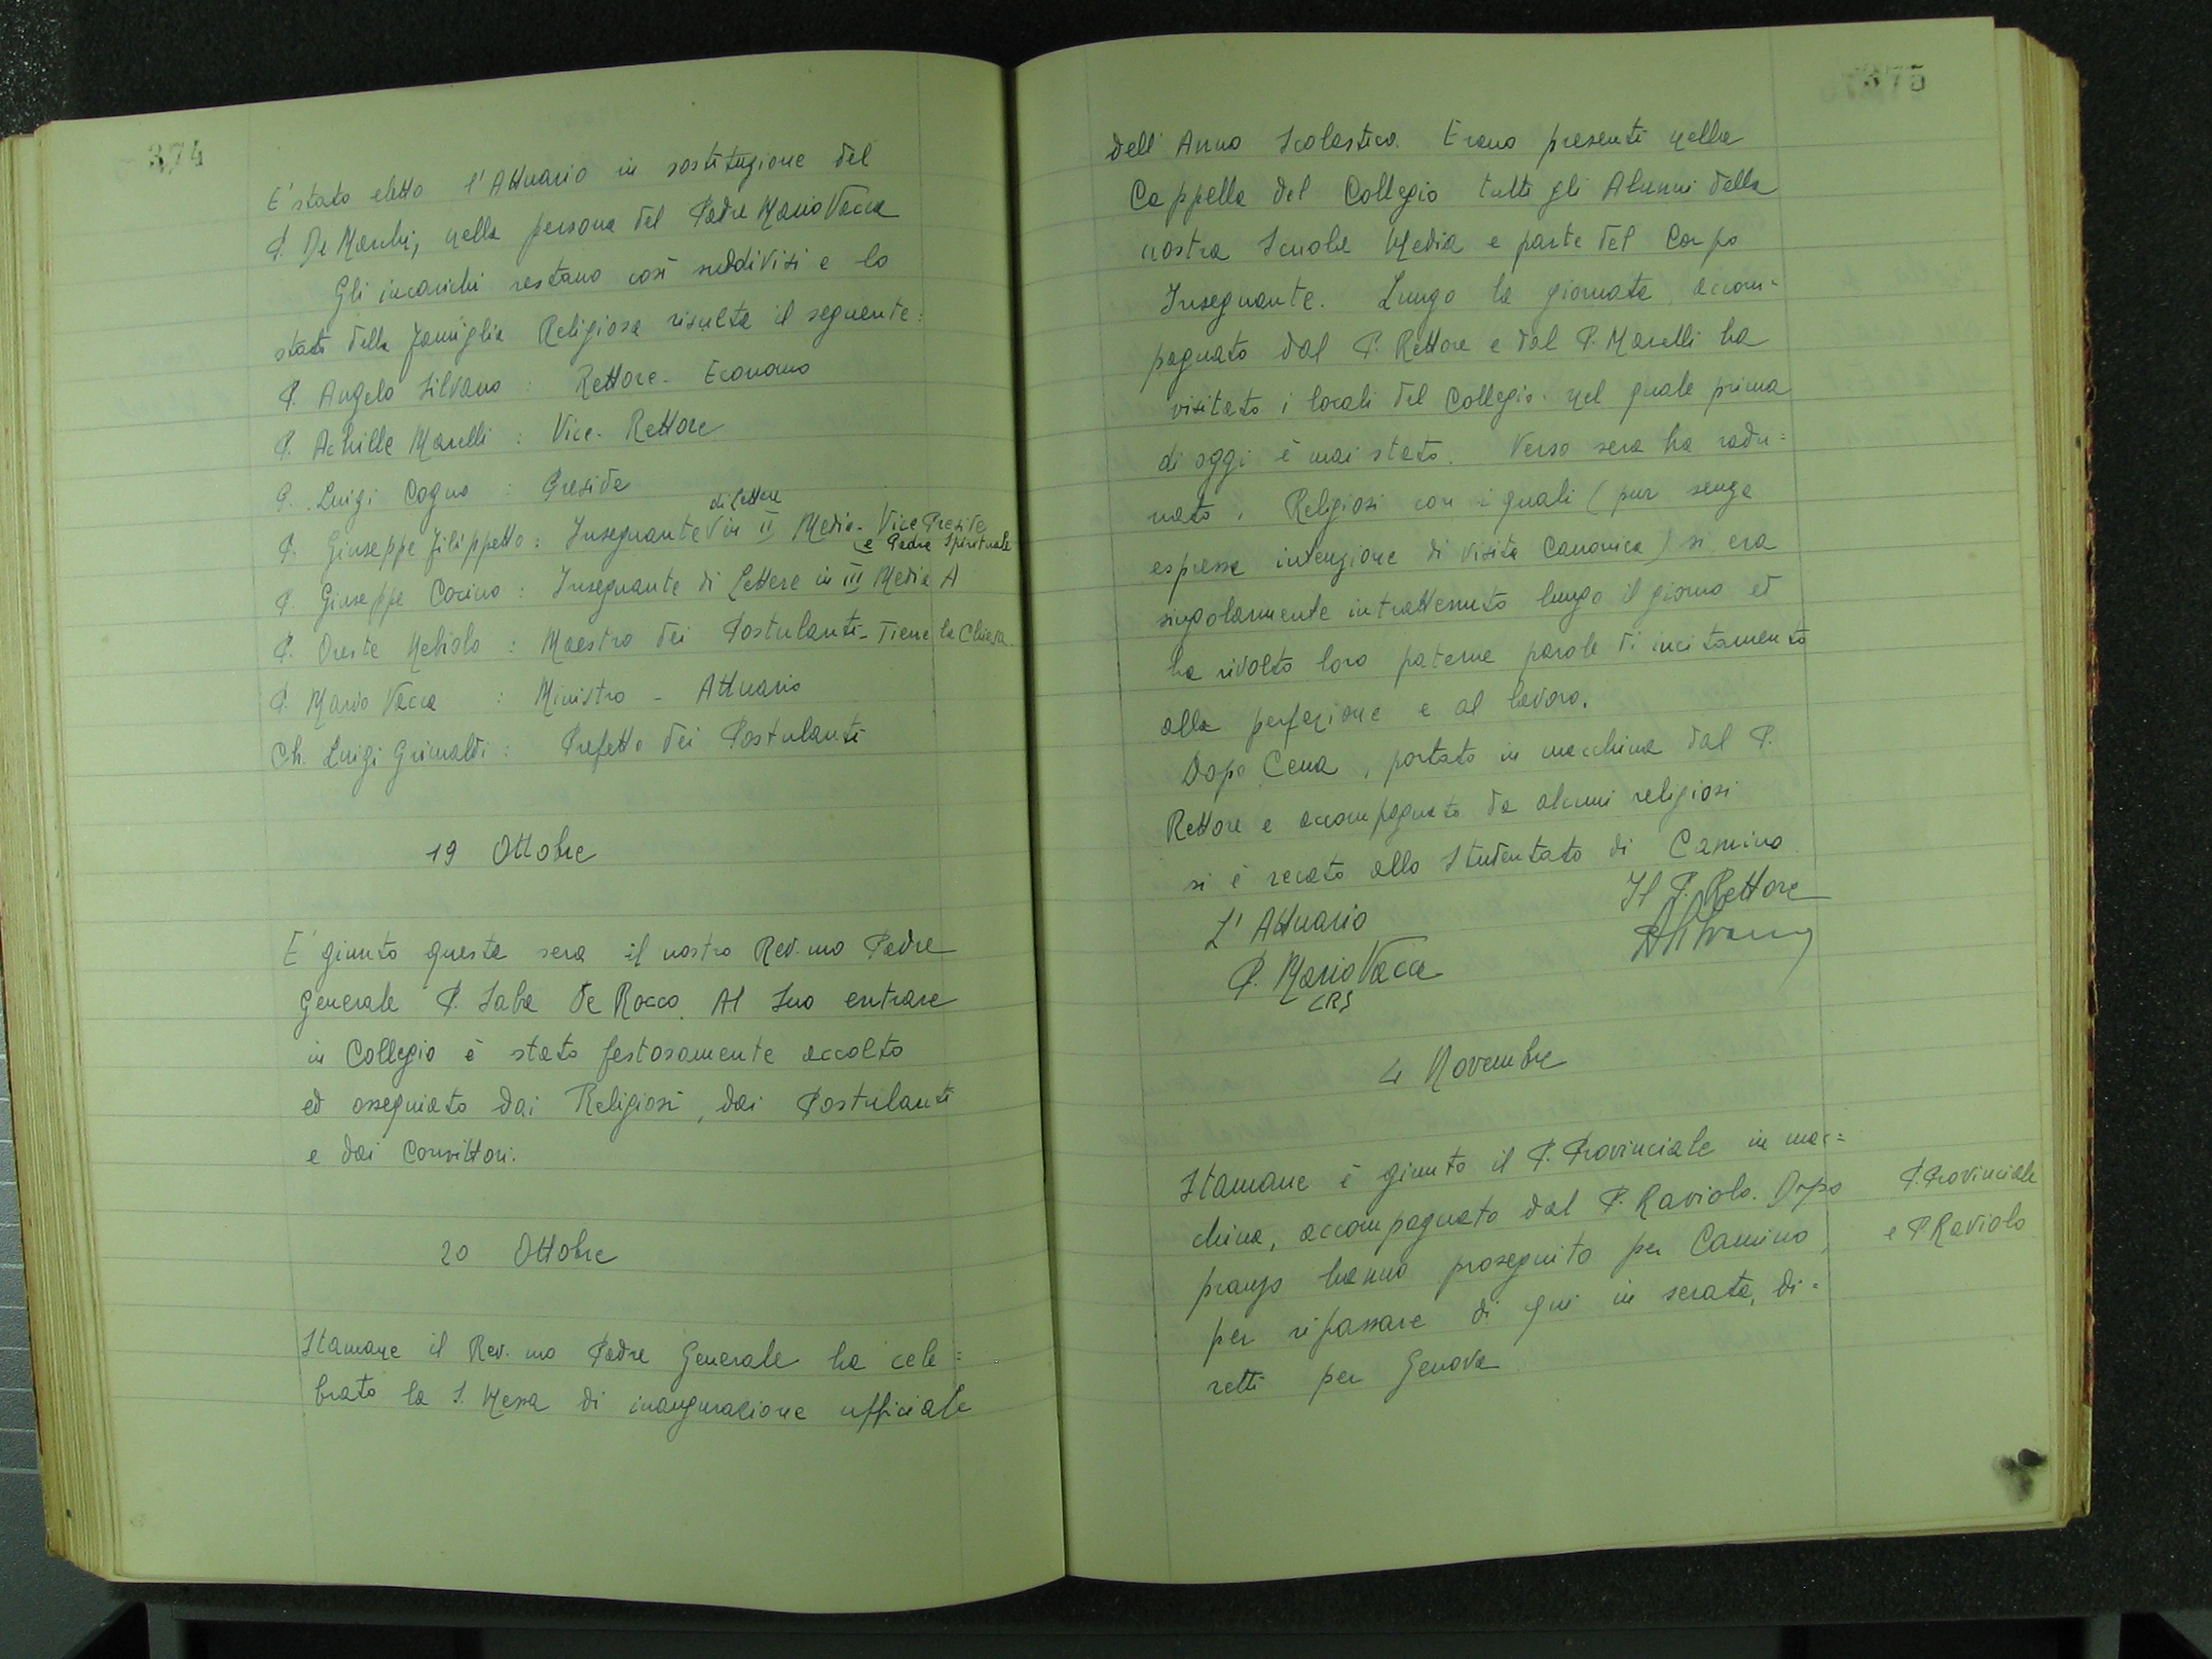 374
E' stato eletto l'Attuario in sostituzione del
P. De Marchi, nella persona del Padre Mario Vacca
Gli incarichi restano così suddivisi e lo
stato della Famiglia Religiosa risulta il seguente:
P. Angelo Silvano : Rettore - Economo
P. Achille Marelli : Vice-Rettore
P. Luigi Cogno : Preside
P. Giuseppe Filippetto : Insegnante di Lettere in II Media - Vice Preside
e Padre Spirituale
P. Giuseppe Corino : Insegnante di Lettere in III Media A
P. Oreste Nebiolo : Maestro dei Postulanti - Tiene la Chiesa.
P. Mario Vacca : Ministro - Attuario
Ch. Luigi Grimaldi : Prefetto dei Postulanti
19 Ottobre
E' giunto questa sera il nostro Rev.mo Padre
Generale P. Saba De Rocco. Al Suo entrare
in Collegio è stato festosamente accolto
ed ossequiato dai Religiosi, dai Postulanti
e dai Convittori.
20 Ottobre
Stamane il Rev.mo Padre Generale ha cele=
brato la S. Messa di inaugurazione ufficiale
375
dell'Anno Scolastico. Erano presenti nella
Cappella del Collegio tutti gli Alunni della
nostra Scuola Media e parte del Corpo
Insegnante. Lungo la giornata, accom=
pagnato dal P. Rettore e dal P. Marelli ha
visitato i locali del Collegio nel quale prima
di oggi è mai stato. Verso sera ha radu=
nato i Religiosi con i quali (pur senza
espressa intenzione di Visita Canonica) si era
singolarmente intrattenuto lungo il giorno ed
ha rivolto loro paterne parole di incitamento
alla perfezione e al lavoro.
Dopo Cena, portato in macchina dal P.
Rettore e accompagnato da alcuni religiosi
si è recato allo Studentato di Camino.
L'Attuario Il P. Rettore
P. Mario Vacca ASilvano
CRS
4 Novembre
Stamane è giunto il P. Provinciale in mac=
china, accompagnato dal P. Raviolo. Dopo
pranzo hanno proseguito per Camino,
per ripassare di qui in serata, di=
retti per Genova.
P. Provinciale
e P Raviolo